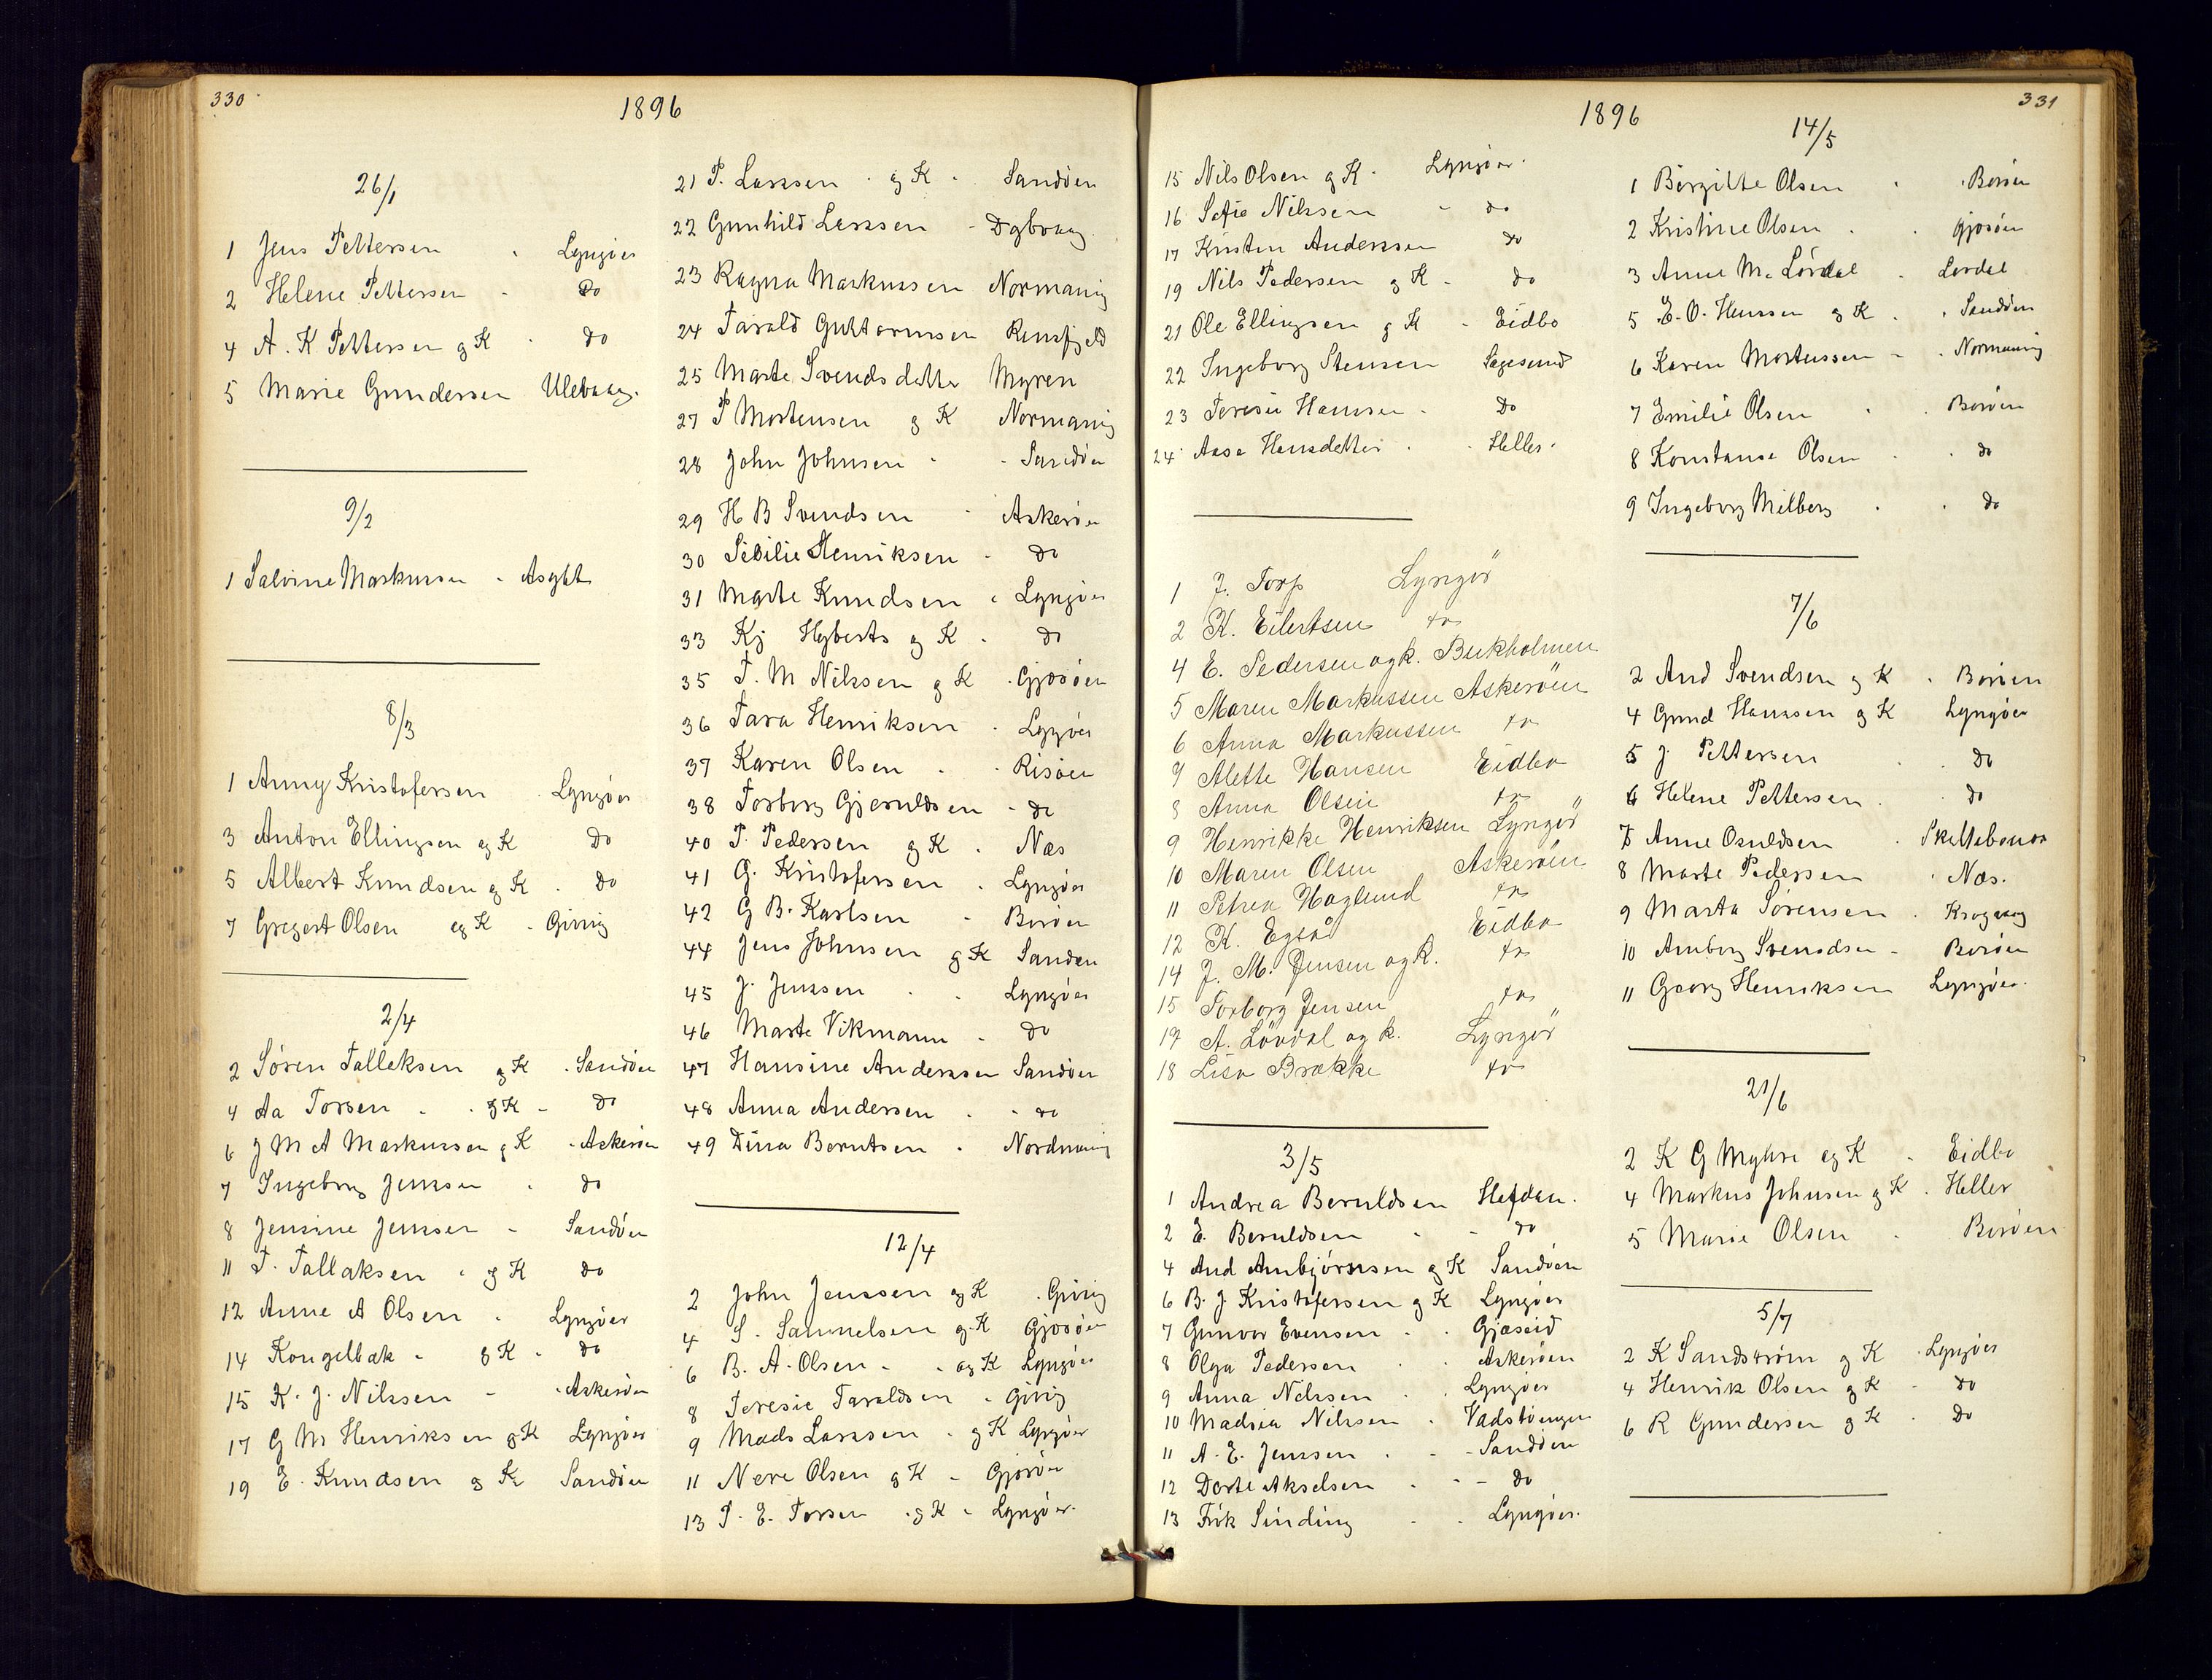 330
1896
26/1
1 Jens Pettersen Lyngøer
2 Helene Pettersen do
4 A. K Pettersen og K do
5 Marie Gundersen Ulevaag.
9/2
1 Salvine Markussen Asybt
8/3
1 Anny Kristofersen Lyngøer
3 Anton Ellingsen og K do
5 Albert Knudsen og K do
7 Gregert Olsen og K Giving
2/4
2 Søren Talleksen og K Sandøen
4 Aa Torsen og K do
6 J M A Markussen og K Askerøen
7 Ingeborg Jenssen do
8 Jensine Jenssen Sandøen
11 T. Tallaksen og K do
12 Anne A Olsen Lyngøer
14 Kongelbak og K do
15 K. J. Nilssen Askerøen
17 G M Henriksen og K Lyngøer
19 E. Knudsen og K Sandøen
21 P. Larssen og K Sandøen
22 Gunhild Larssen Dybvaag
23 Ragna Markussen Normanvig
24 Tarald Guttormsen Rensfjeld
25 Marte Svendsdatter Myren
27 P Mortensen og K Normanvig
28 John Johnsen Sandøen
29 H B Svendsen Askerøen
30 Sesilie Henriksen do
31 Marte Knudsen Lyngøer
33 Kj Hyberts og K do
35 T. M Nilssen og K Gjæsøen
36 Tara Henriksen Lyngøer
37 Karen Olsen Risøen
38 Torborg Gjeruldsen do
40 P. Pedersen og K Næs
41 G. Kristofersen Lyngøer
42 G B. Karlsen Borøen
44 Jens Johnsen og K Sandøen
45 J. Jenssen Lyngøer
46 Marte Vikmann do
47 Hansine Anderssen Sandøen
48 Anna Andersen do
49 Dina Berntsen Nordmanvig
12/4
2 John Jenssen og K Giving
4 S. Samuelsen og K Gjæsøen
6 B. A. Olsen og K Lyngøer
8 Teresie Taraldsen Giving
9 Mads Larssen og K Lyngøer
11 Nere Olsen og K Gjæsøen
13 P. E. Torsen og K Lyngøer
1896
331
15 Nils Olsen og K. Lyngøer
16 Sofie Nilssen do
17 Kristen Anderssen do
19 Nils Pedersen og K do
21 Ole Ellingsen og K Eidbo
22 Ingeborg Stensen Sagesund
23 Teresie Hanssen do
24 Aase Hansdatter Heller
1 J. Torp Lyngör
2 K. Eilertsen do
4 E. Pedersen og k. Bukholmen
5 Maren Markussen Askeröen
6 Anna Markussen do
7 Alette Hansen Eidbo
8 Anna Olsen do
9 Henrikke Henriksen Lyngör
10 Maren Olsen Askeröen
11 Petrea Haglund do
12 K. Egså Eidbo
14 J. M. Jensen og k. do
15 Torborg Jensen do
17 A. Lövdal og k. Lyngör
18 Lisa Brække do
3/5
1 Andrea Beruldsen Stefdan.
2 E. Beruldsen do
4 And Arnbjørnsen og K Sandøen
6 B. J. Kristofersen og K Lyngøer
7 Gunvor Evensen Gjæseid
8 Olga Pedersen Askerøen
9 Anna Nilssen Lyngøer
10 Madsia Nilssen Vadstvengen
11 A. E. Jenssen Sandøen
12 Dorte Akselsen do
13 Frøk Sinding Lyngøer.
14/5
1 Børgitte Olsen Borøen
2 Kristine Olsen Gjæsøen
3 Anne M. Løvdal Løvdal
5 E. O. Hanssen og K Sandøen
6 Karen Mortenssen Normanvig
7 Emilie Olsen Borøen
8 Konstanse Olsen do
9 Ingeborg Milberg do
7/6
2 And Svendsen og K Borøen
4 Gund Hanssen og K Lyngøer
5 J. Pettersen do
6 Helene Pettersen do
7 Anne Osuldsen
8 Marte Pedersen Næs.
9 Marta Sørensen Krogvaag
10 Arnborg Svendsen Borøen
11 Georg Henriksen Lyngøer.
21/6
2 K G Myhre og K Eidbo
4 Markus Johnsen og K Heller
5 Marie Olsen Borøen
5/7
2 K Sandstrøm og K Lyngøer
4 Henrik Olsen og K do
6 R Gundersen og K do